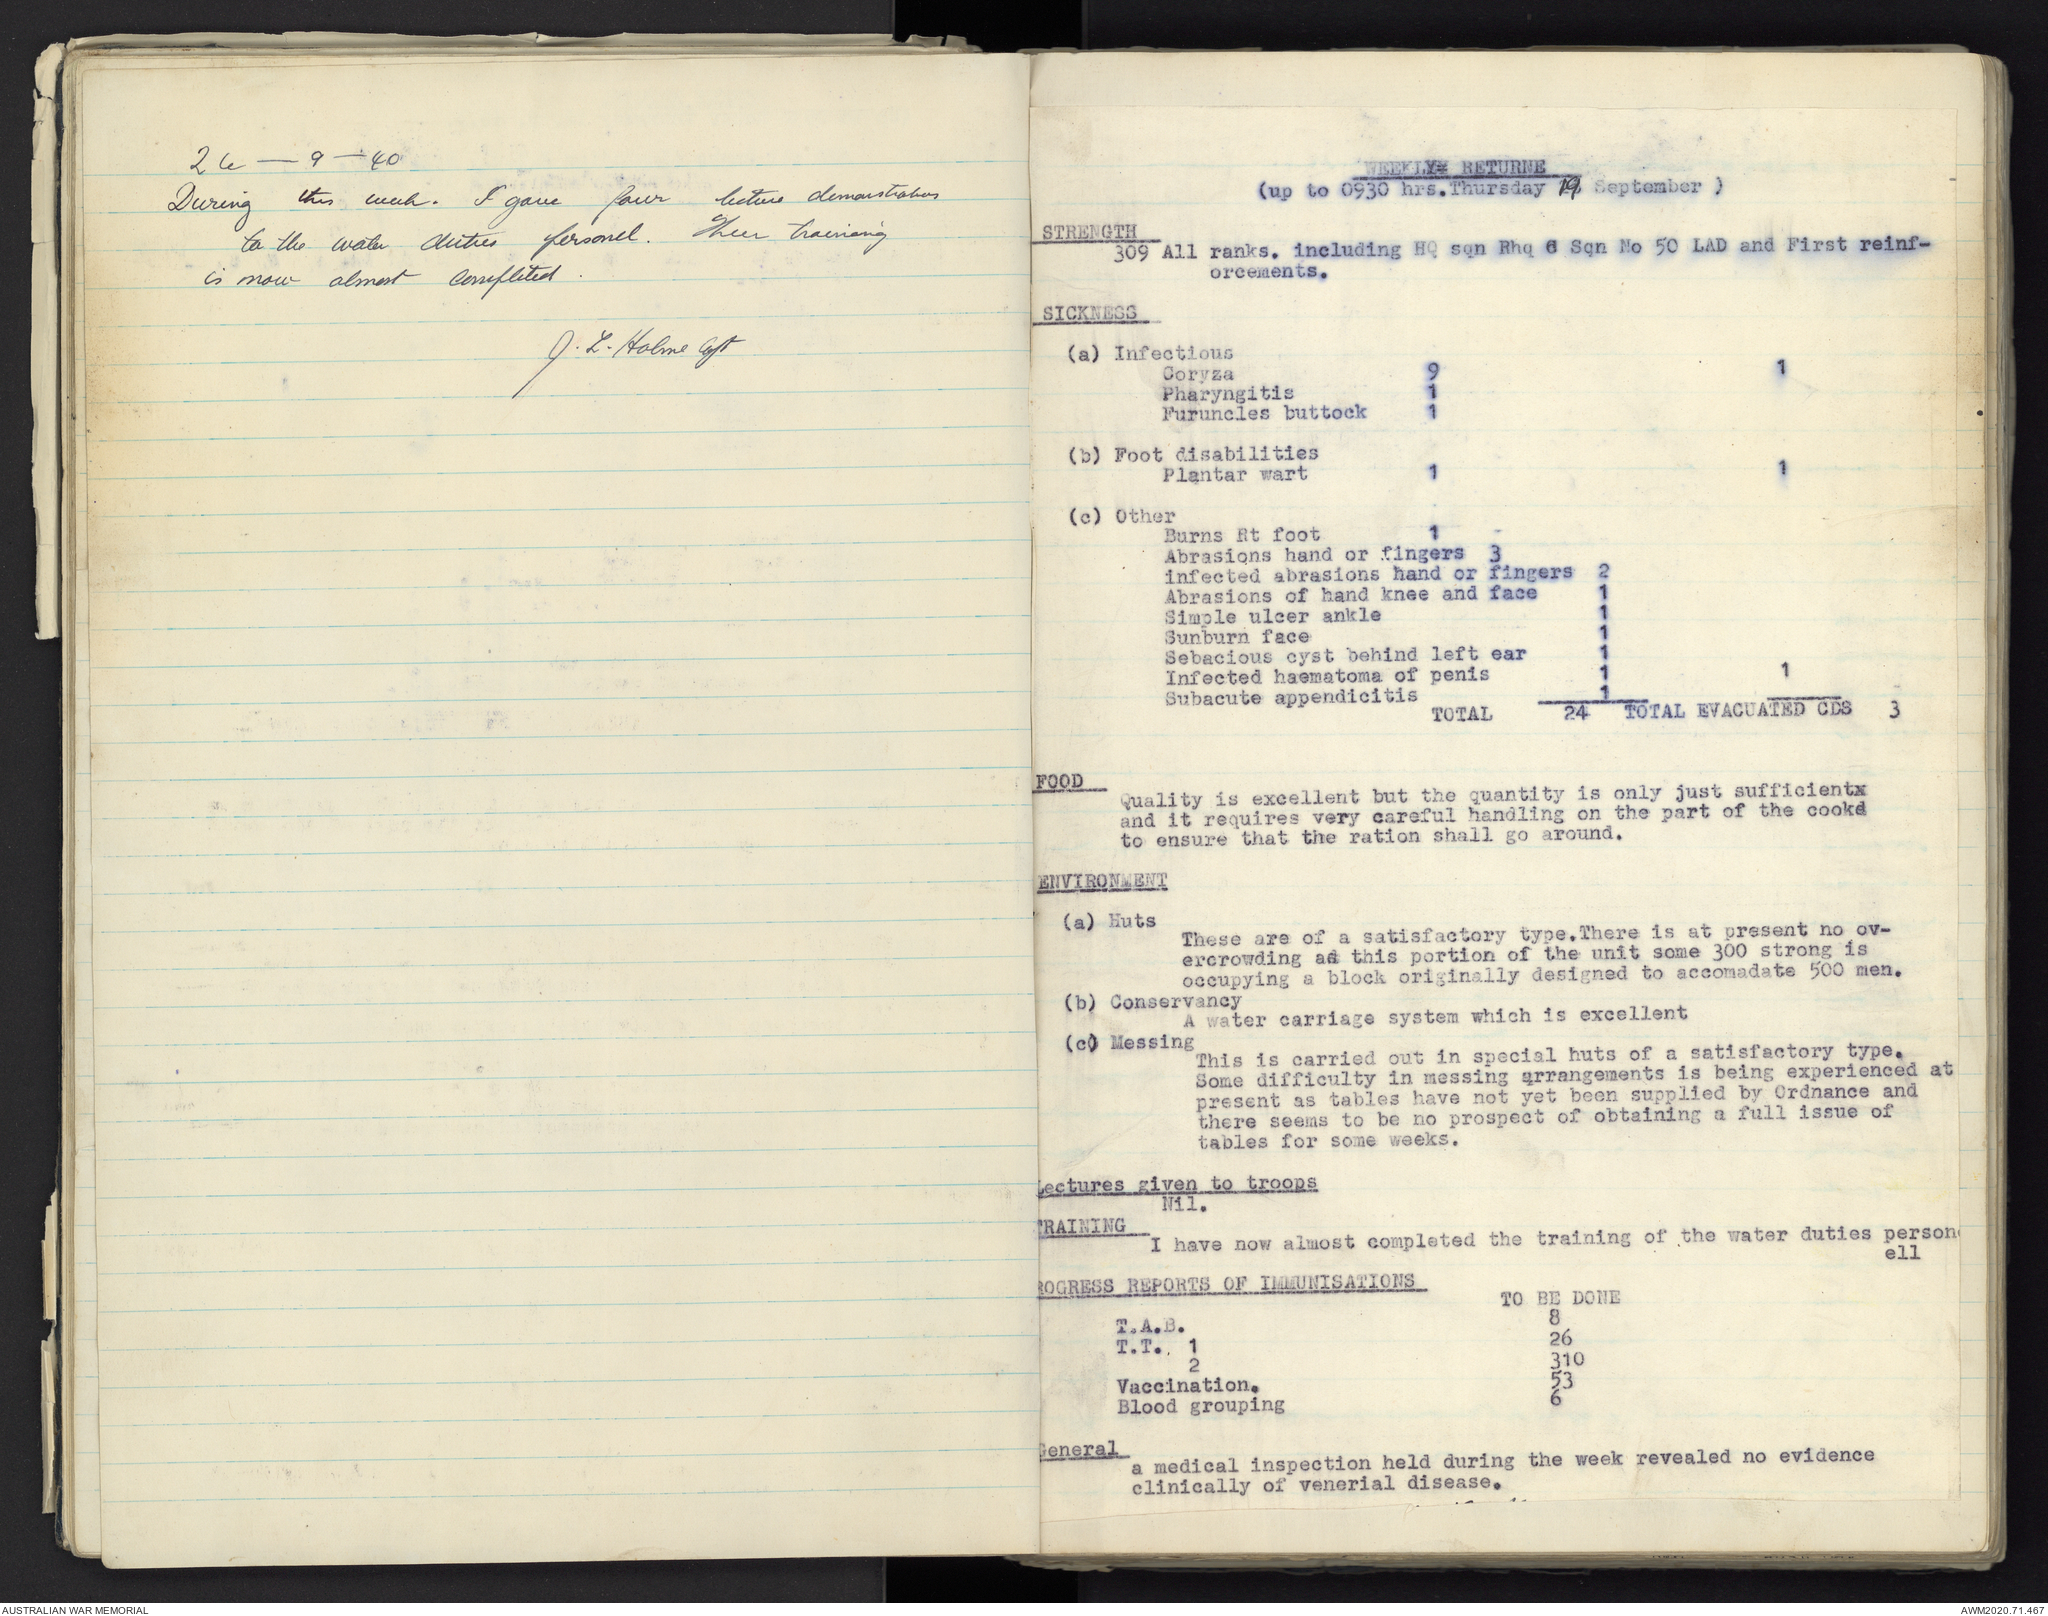 26 — 9 — 40
During this week. I gave four lecture demonstrations
to the water duties personel. Their training
is now almost completed.
J. L. Holme Capt
WEEKLY RETURNE
(up to 0930 hrs.Thursday 19 September )
STRENGTH
309 All ranks. including HQ sqn Rhq 6 Sqn No 50 LAD and First reinf-
orcements.
SICKNESS
(a) Infectious
Coryza 9 1
Pharyngitis 1
Furuncles buttock 1
(b) Foot disabilities
Plantar wart 1 1
(c) Other
Burns Rt foot 1
Abrasions hand or fingers 3
infected abrasions hand or fingers 2
Abrasions of hand knee and face 1
Simple ulcer ankle 1
Sunburn face 1
Sebacious cyst behind left ear 1
Infected haematoma of penis 1 1
Subacute appendicitis 1
TOTAL 24 TOTAL EVACUATED CDS 3
FOOD
Quality is excellent but the quantity is only just sufficientx
and it requires very careful handling on the part of the cooks
to ensure that the ration shall go around.
ENVIRONMENT
(a) Huts
These are of a satisfactory type.There is at present no ov-
ercrowding as this portion of the unit some 300 strong is
occupying a block originally designed to accomadate 500 men.
(b) Conservancy
A water carriage system which is excellent
(c) Messing
This is carried out in special huts of a satisfactory type.
Some difficulty in messing arrangements is being experienced at
present as tables have not yet been supplied by Ordnance and
there seems to be no prospect of obtaining a full issue of
tables for some weeks.
Lectures given to troops
Nil.
TRAINING
I have now almost completed the training of the water duties person
ell
ROGRESS REPORTS OF IMMUNISATIONS
TO BE DONE
T.A.B. 8
T.T. 1 26
2 310
Vaccination. 53
Blood grouping 6
General
a medical inspection held during the week revealed no evidence
clinically of venerial disease.
AUSTRALIAN WAR MEMORIAL
AWM2020.71.467